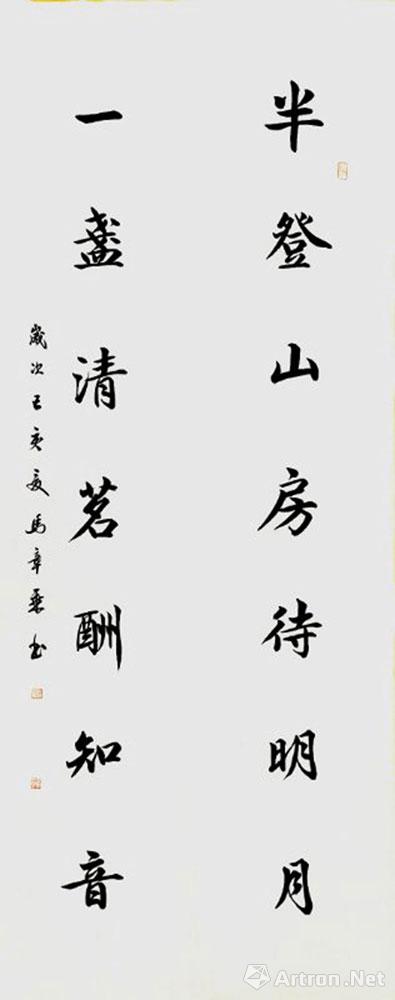 半登山房待明月
一盞清茗酬知音
歲次己亥夏馬章乘书
Artron.Net